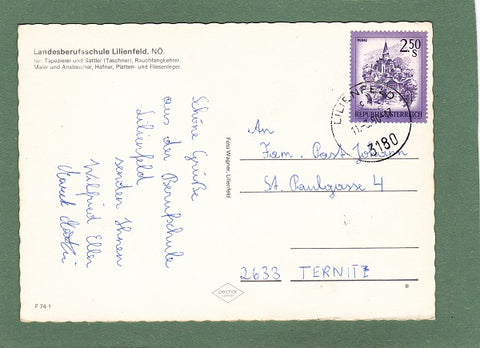 Landesberufsschule Lilienfeld, NÖ.
für: Tapezierer und Sattler (Taschner), Rauchfangkehrer,
Maler und Anstreicher, Hafner, Platten- und Fliesenleger.
Schöne Grüße
aus der Berufschule
Lilienfeld
senden Ihnen
Wilfried Eller
Foto Wagner, Lilienfeld
2 50
S
REPUBLIK ÖSTERREICH
LILIENFELD
3180
An
Fam. Post Johann
St. Paulgasse 4
2633 TERNITZ
F 74 1